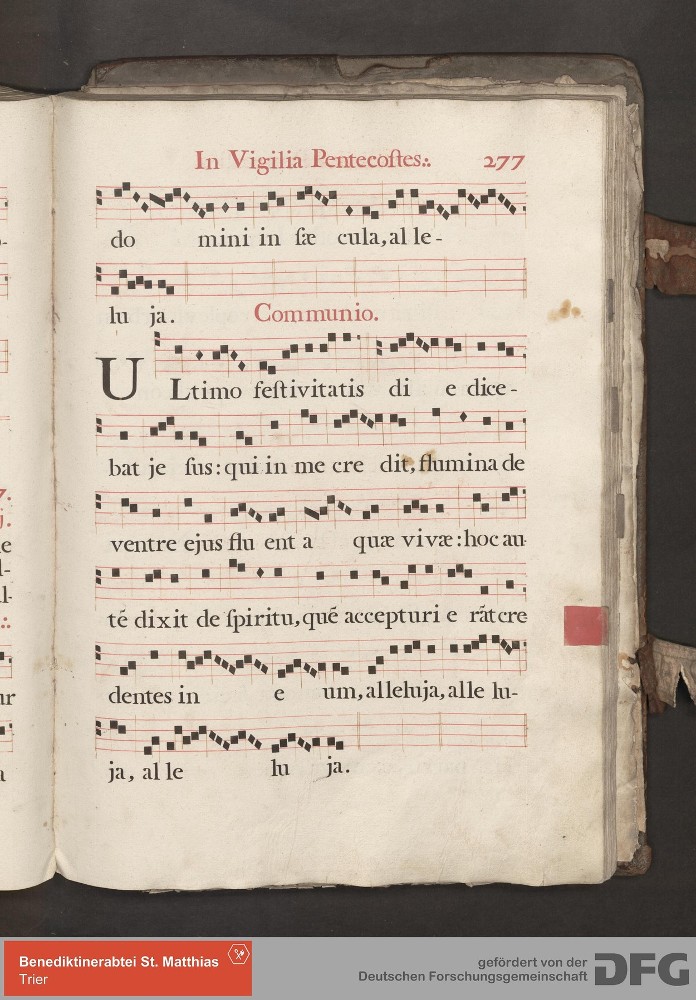 In Vigilia Pentecoſtes.:. 277
do mini in ſæ cula, al le-
lu ja.
Communio.
ULtimo feſtivitatis di e dice-
bat je ſus: qui in me cre dit, flumina de
ventre ejus flu ent a quæ vivæ: hoc au-
tē dixit de ſpiritu, quē accepturi e rāt cre
dentes in e um, alleluja, alle lu-
ja, al le lu ja.
Benediktinerabtei St. Matthias
Trier
gefördert von der
Deutschen Forschungsgemeinschaft
DFG